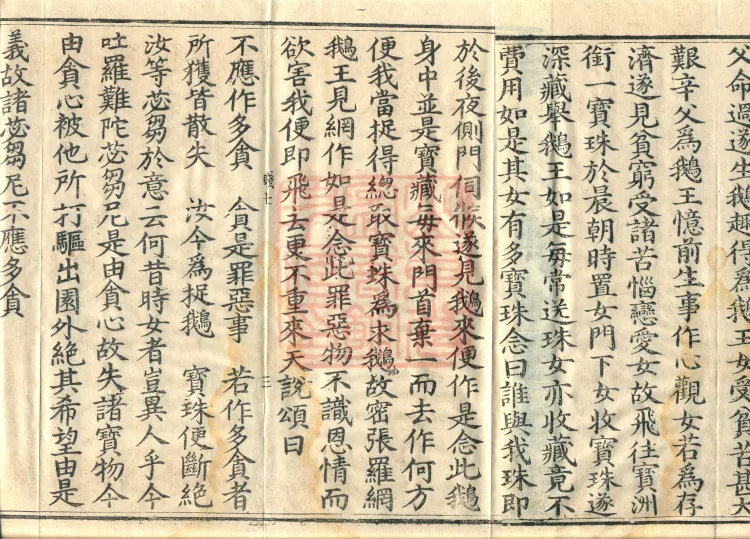 父命過遂生鵝趣得爲鵝王女受貧苦甚大
艱辛父爲鵝王憶前生事作心觀女若爲存
濟遂見貧窮受諸苦惱戀愛女故飛往寶洲
銜一寶珠於晨朝時置女門下女收寶珠遂
深藏舉鵝王如是每常送珠女亦收藏竟不
費用如是其女有多寶珠念曰誰與我珠即
於後夜側門伺候遂見鵝來便作是念此鵝
身中並是寶藏每來門首棄一而去作何方
便我當捉得總取寶珠爲求鵝故密張羅網
鵝王見網作如是念此罪惡物不識恩情而
欲害我便即飛去更不重來天說頌曰
三
不應作多貪 貪是罪惡事 若作多貪者
所獲皆散失 汝今爲捉鵝 寶珠便斷絕
汝等苾芻於意云何昔時女者豈異人乎今
吐羅難陀苾芻尼是由貪心故失諸寶物今
由貪心被他所打驅出園外絕其希望由是
義故諸苾芻尼不應多貪